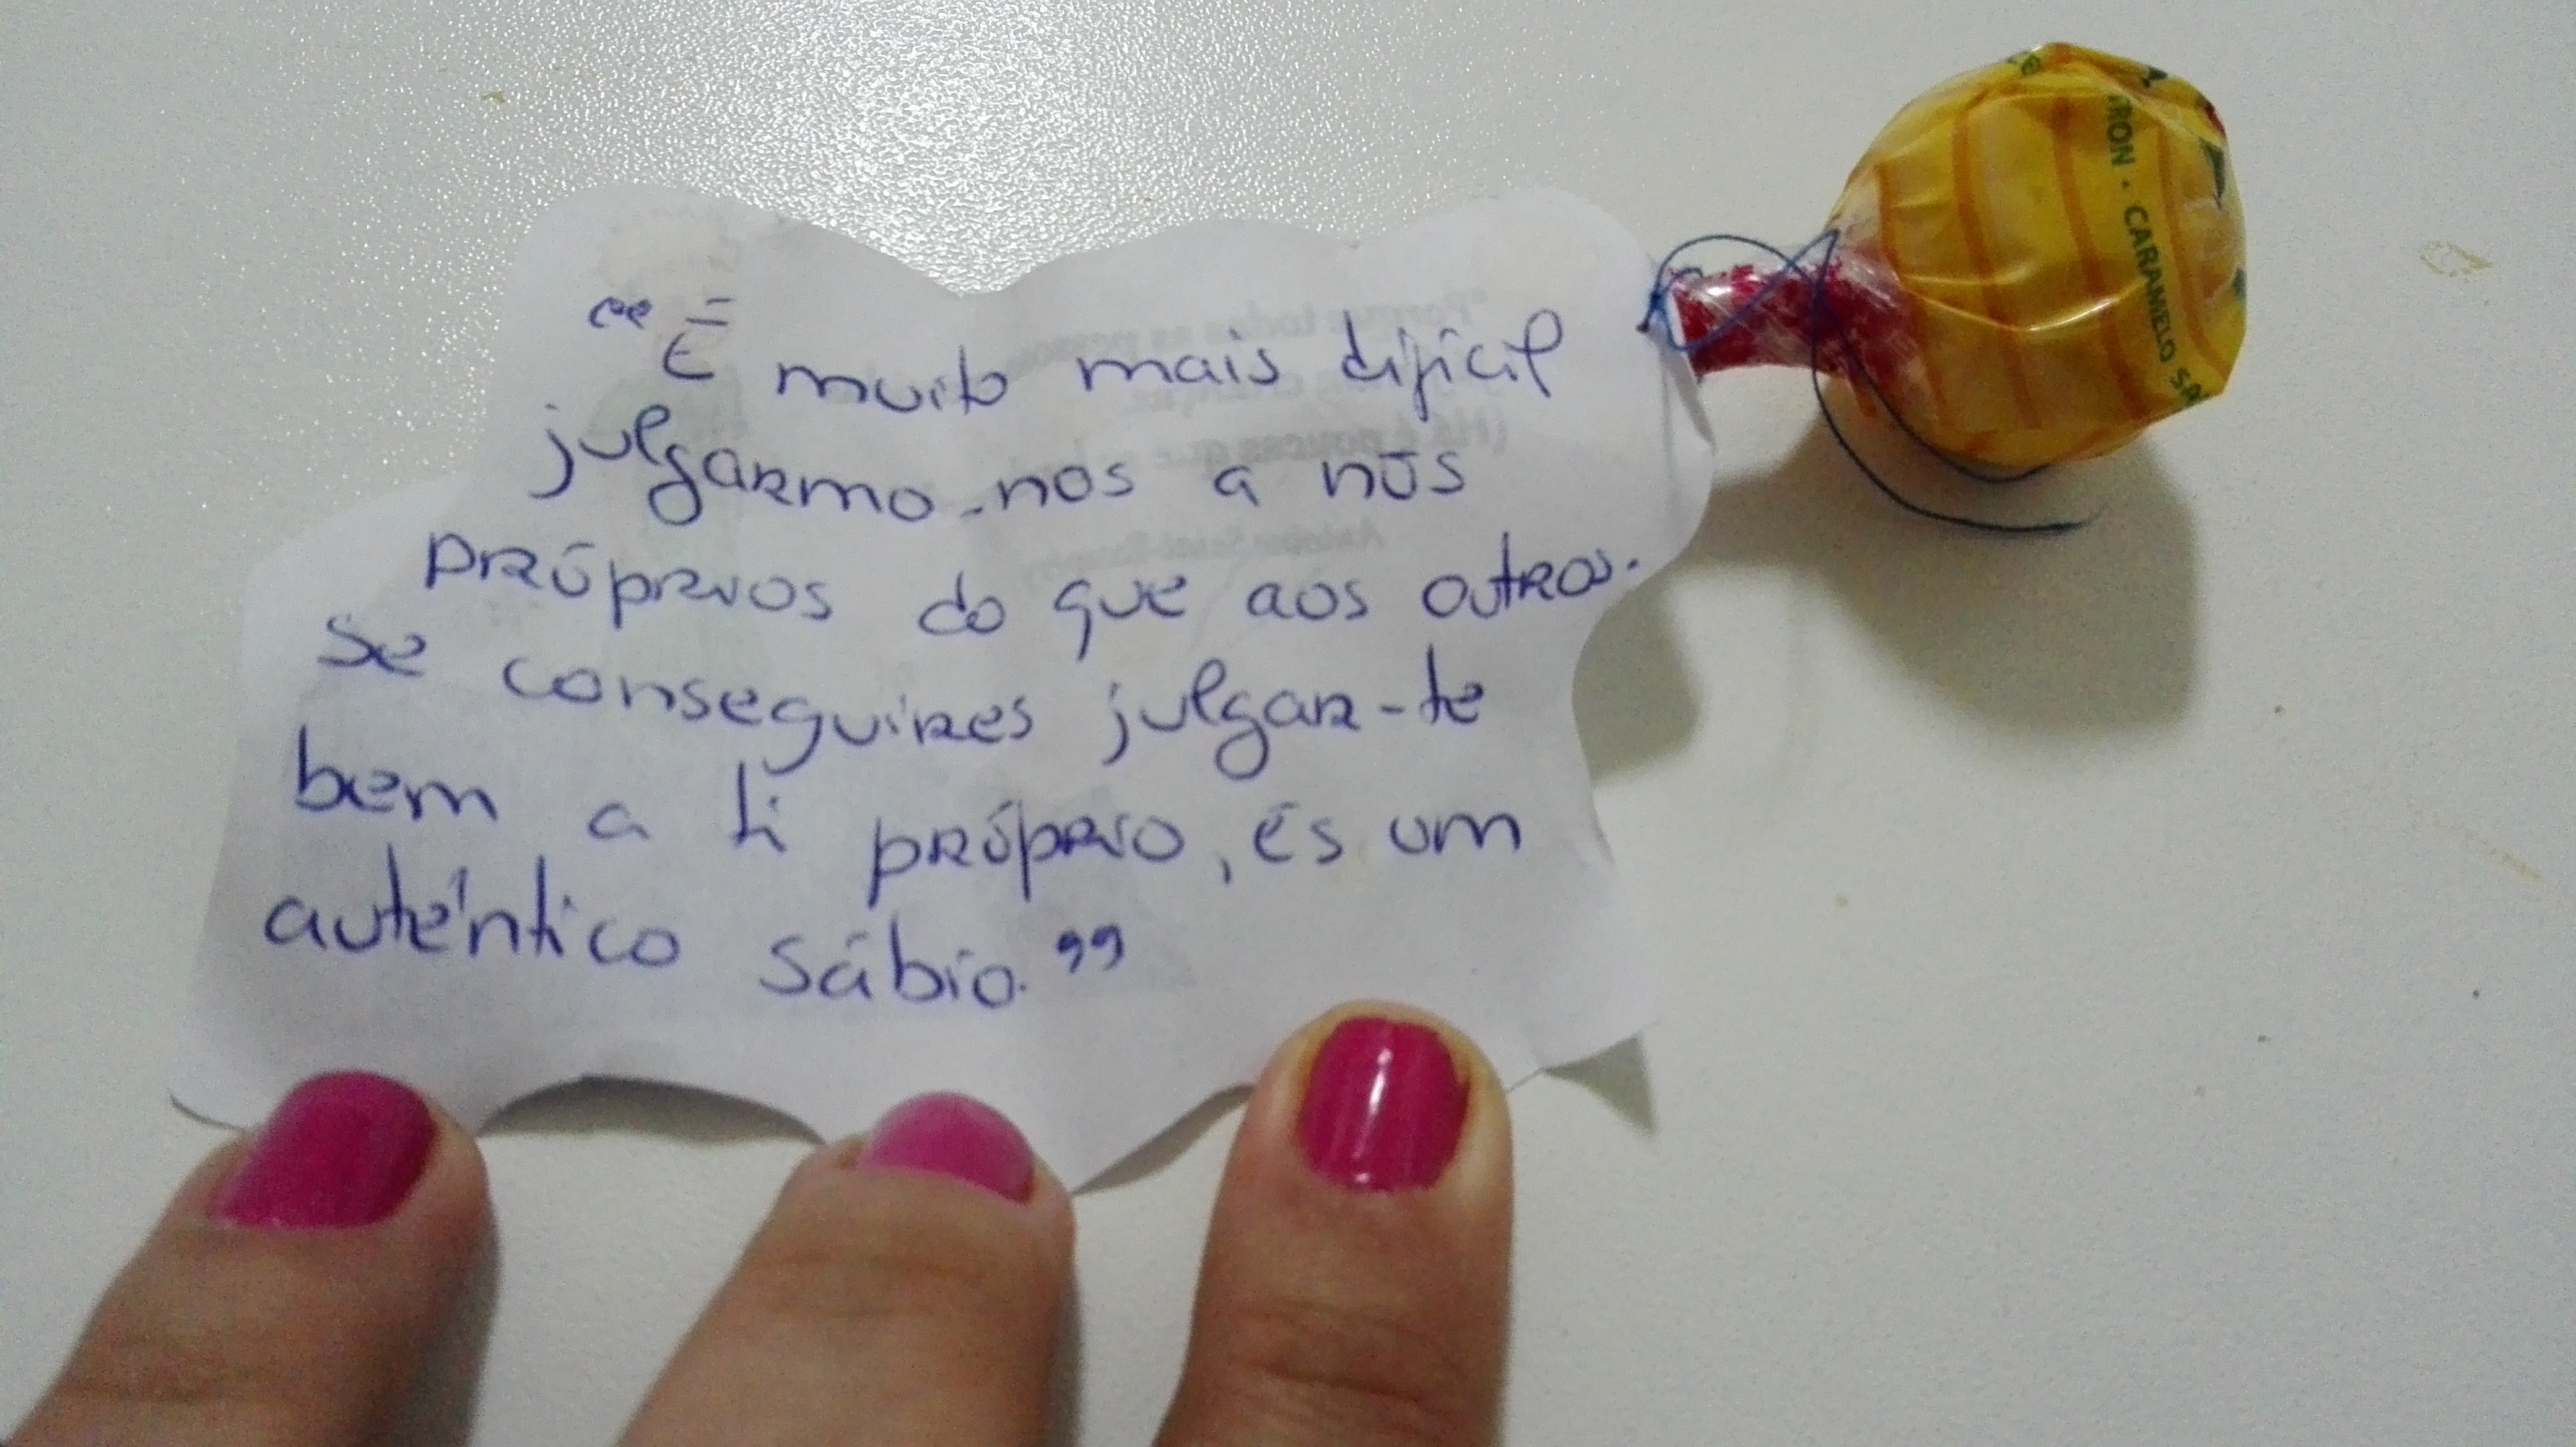 “É muito mais difícil
julgarmo-nos a nós
próprios do que aos outros.
Se conseguires julgar-te
bem a ti próprio, és um
autêntico sábio.”
CARAMELO